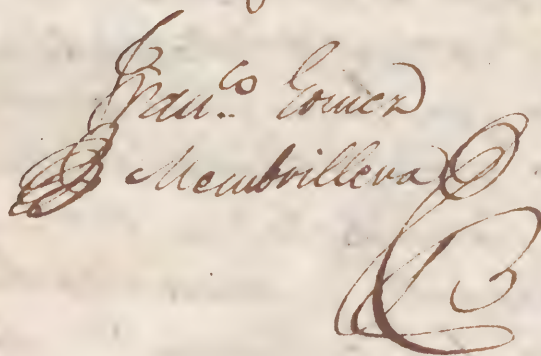 Fran.co Gomez
Membrillera